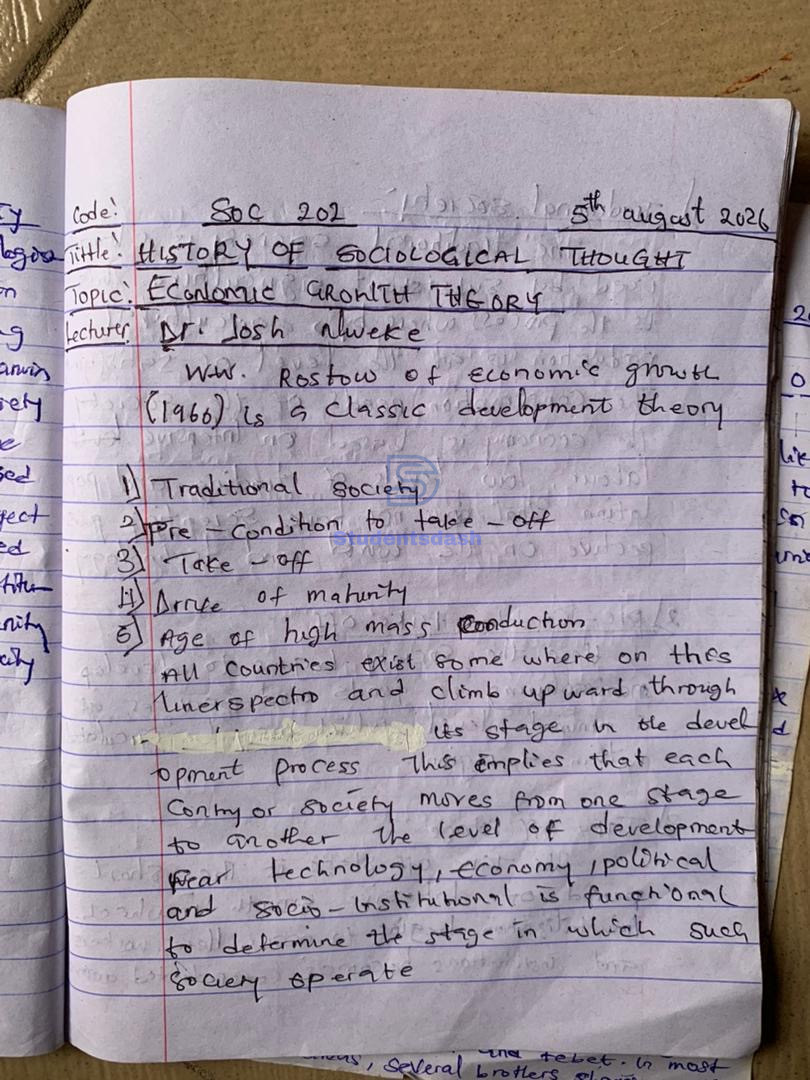 Code: SOC 202 5th august 2026
Tittle: HISTORY OF SOCIOLOGICAL THOUGHT
Topic: ECONOMIC GROWTH THEORY
Lecturer Dr. Josh Nweke
W.W. Rostow of economic growth
(1960) is a classic development theory
1) Traditional society
2) Pre-condition to take-off
Studentsdash
3) Take-off
4) Drive of maturity
5) Age of high mass conduction
All countries exist some where on this
linerspectro and climb upward through
its stage in the devel
opment process This implies that each
Contry or society moves from one stage
to another the level of development
technology, economy, political
and socio-institutional is functional
to determine the stage in which such
society operate
and tebet. in most
several brothers